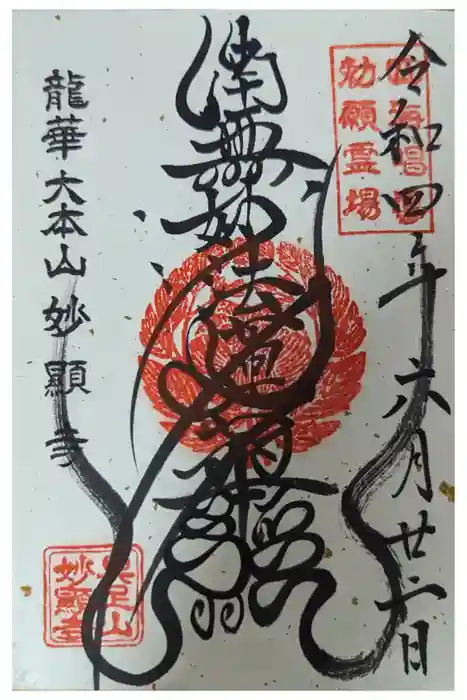 令和四年六月廿二日
四海唱導
勅願霊場
南無妙法蓮華経
龍華大本山妙顯寺
具足山
妙顯寺